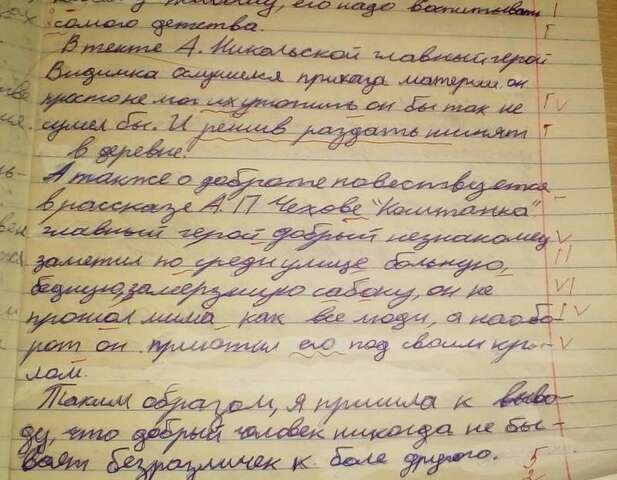 его надо воспитывать
самого детства.
В тексте А. Никольской главный герой
Видимка ослушился приказа матери. он
просто не мог их утопить он бы так не
сумел бы. И решив раздать кинят
в деревне.
А также о доброте повествуется
в рассказе А. П Чехове "Каштанка"
главный герой добрый незнакомец
заметил по среди улице больную,
бедную, замерзшую сабоку, он не
прошол мима как все люди, а наобо-
рот он приютил его под своим кры-
лом.
Таким образом, я пришла к выво-
ду, что добрый человек никогда не бы-
вает безразличек к боле другого.
5
2